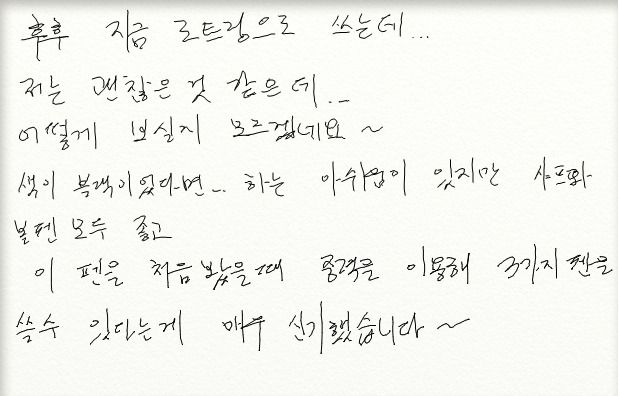 후후 지금 로트링으로 쓰는데...
저는 괜찮은 것 같은데...
어떻게 보실지 모르겠네요~
색이 블랙이었다면... 하는 아쉬움이 있지만 샤프와
볼펜 모두 좋고
이 펜을 처음 봤을때 중력을 이용해 3가지 펜을
쓸수 있다는게 매우 신기했습니다~